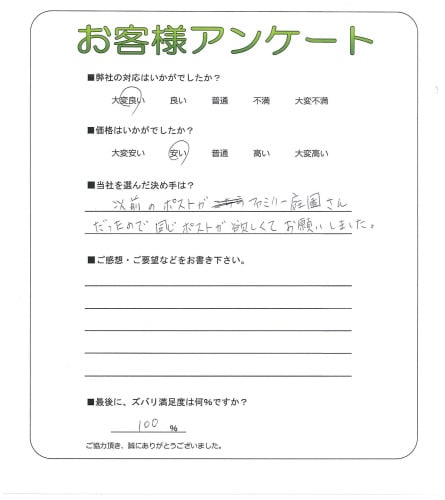 お客様アンケート
■弊社の対応はいかがでしたか？
大変良い 良い 普通 不満 大変不満
■価格はいかがでしたか？
大変安い 安い 普通 高い 大変高い
■当社を選んだ決め手は？
以前のポストが ファミリー庭園さん
だったので同じポストが欲しくてお願いしました。
■ご感想・ご要望などをお書き下さい。
■最後に、ズバリ満足度は何％ですか？
100 %
ご協力頂き、誠にありがとうございました。